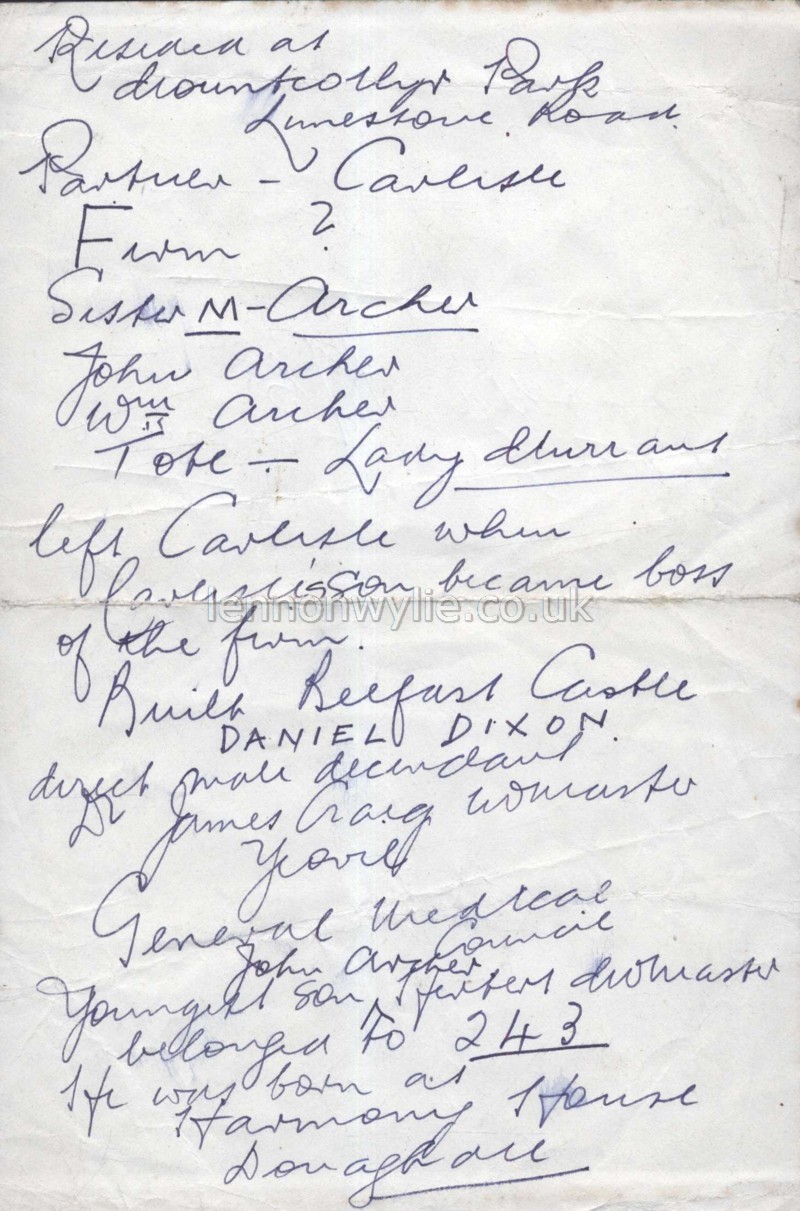 Resided at
Mountcollyer Park
Limestone Road
Partner - Carlisle
Firm ?
Sister M - Archer
John Archer
Wm Archer
Tote - Lady Murrant
left Carlisle when
Carlisle's son became boss
of the firm.
Built Belfast Castle
DANIEL DIXON
direct male decendant
Dr James Craig McMaster
Yeovil
General Medical
Council
John Archer
Youngest son, Herbert McMaster
belonged to 243
He was born at
Harmony House
lennonwylie.co.uk